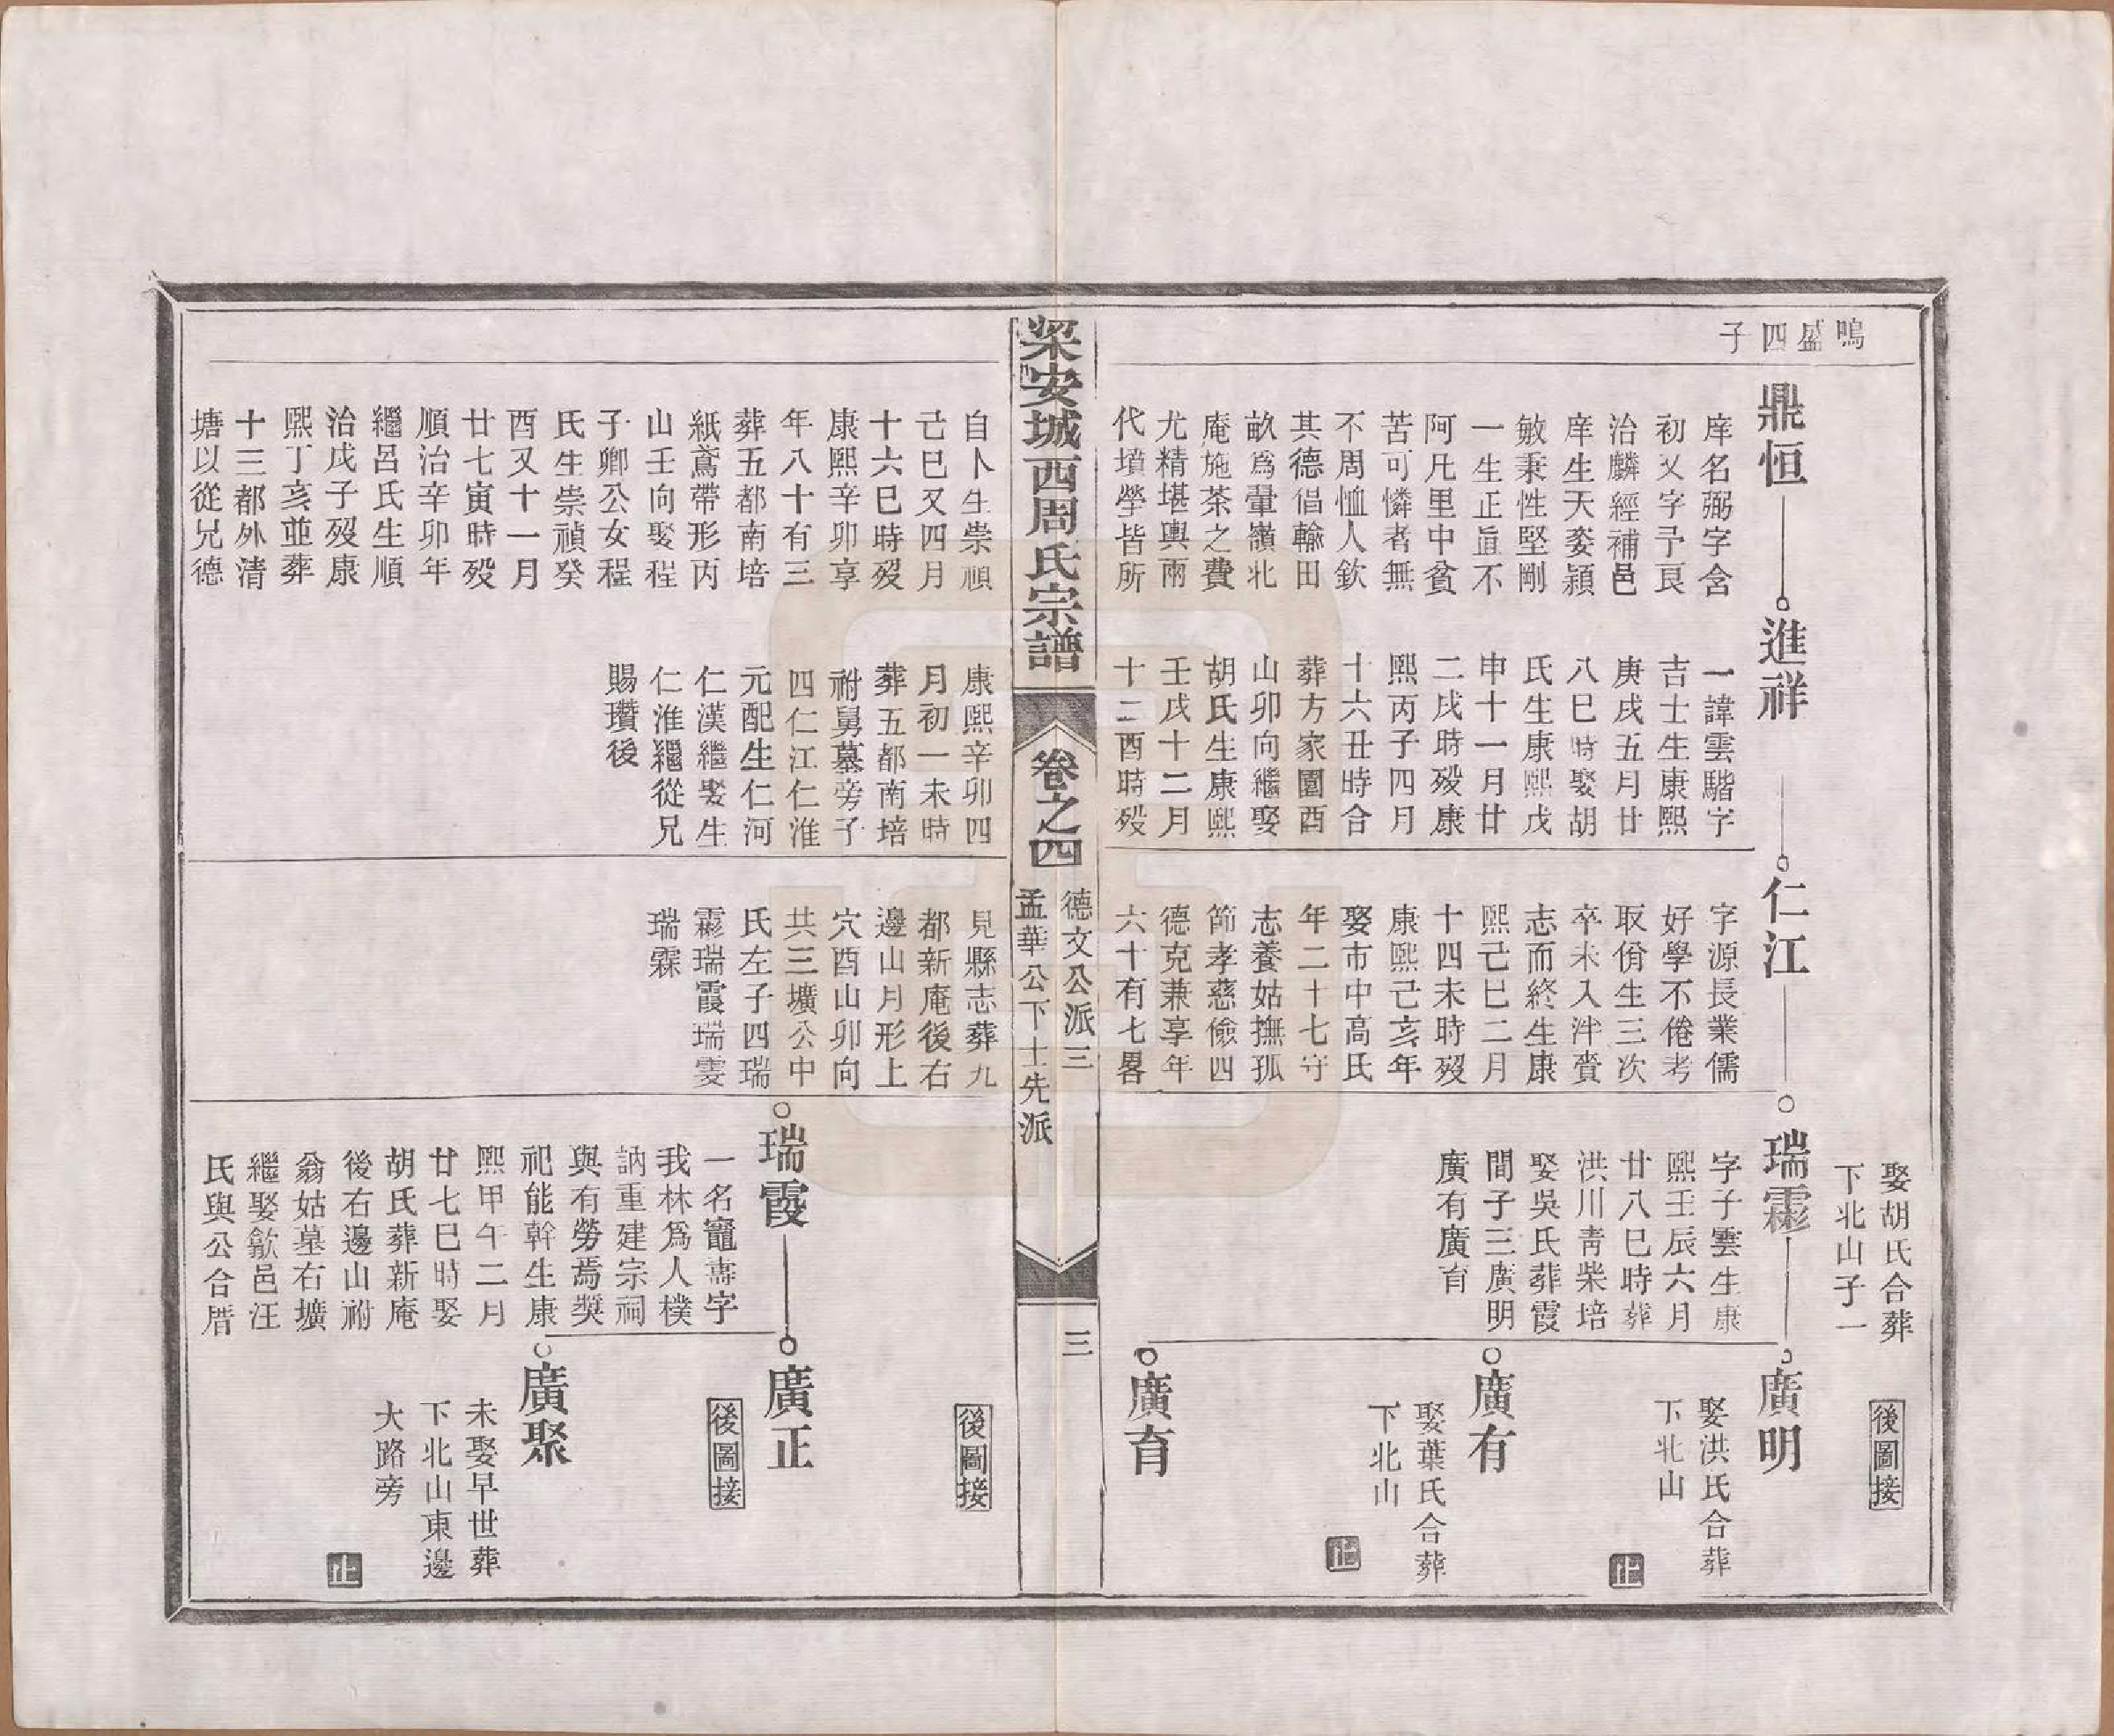 鳴盛四子
鼎恒
庠名弼字含
初又字予艮
治麟經補邑
庠生天姿穎
敏秉性堅剛
一生正直不
阿凡里中貧
苦可憐者無
不周恤人欽
其德倡輸田
畝爲翬嶺北
庵施茶之費
尤精堪輿兩
代墳塋皆所
進祥
一諱雲騰字
吉士生康熙
庚戌五月廿
八巳時娶胡
氏生康熙戊
申十一月廿
二戌時殁康
熙丙子四月
十六丑時合
葬方家園酉
山卯向繼娶
胡氏生康熙
壬戌十二月
十二酉時殁
仁江
字源長業儒
好學不倦考
取佾生三次
卒未入泮賫
志而終生康
熙己巳二月
十四未時殁
康熙己亥年
娶市中高氏
年二十七守
志養姑撫孤
節孝慈儉四
德克兼享年
六十有七畧
娶胡氏合葬
下北山子一
瑞霦
字子雲生康
熙壬辰六月
廿八巳時葬
洪川靑柴培
娶吳氏葬霞
間子三廣明
廣有廣育
後圖接
廣明
娶洪氏合葬
下北山
止
廣有
娶葉氏合葬
下北山
止
廣育
梁安城西周氏宗譜
卷之四
德文公派三
孟華公下士先派
三
自卜生崇禎
己巳又四月
十六巳時殁
康熙辛卯享
年八十有三
葬五都南培
紙鳶帶形丙
山壬向娶程
子卿公女程
氏生崇禎癸
酉又十一月
廿七寅時殁
順治辛卯年
繼呂氏生順
治戊子殁康
熙丁亥並葬
十三都外清
塘以從兄德
康熙辛卯四
月初一未時
葬五都南培
祔舅墓旁子
四仁江仁淮
元配生仁河
仁漢繼娶生
仁淮繼從兄
賜瓚後
見縣志葬九
都新庵後右
邊山月形上
穴酉山卯向
共三壙公中
氏左子四瑞
霦瑞霞瑞雯
瑞霖
瑞霞
一名竈壽字
我林爲人樸
訥重建宗祠
與有勞焉奬
祀能幹生康
熙甲午二月
廿七巳時娶
胡氏葬新庵
後右邊山祔
翁姑墓右壙
繼娶歙邑汪
氏與公合厝
後圖接
廣正
後圖接
廣聚
未娶早世葬
下北山東邊
大路旁
止